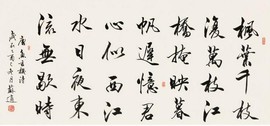 楓葉千枝
復萬枝江
橋掩映暮
帆遲憶君
心似西江
水日夜東
流無歇時
唐魚玄機詩